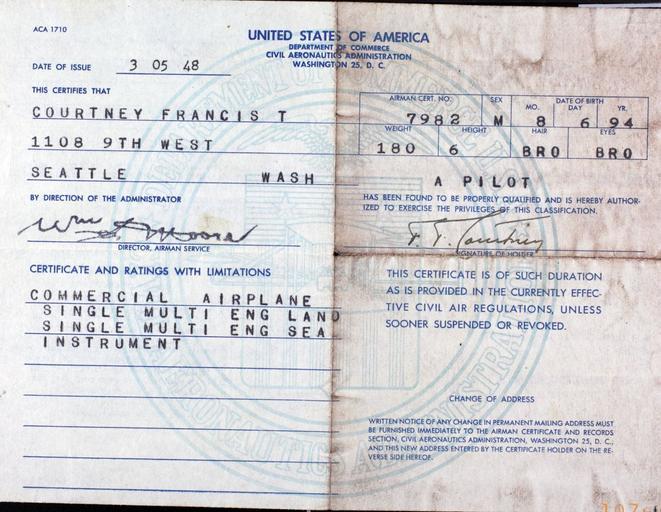 ACA 1710
UNITED STATES OF AMERICA
DEPARTMENT OF COMMERCE
CIVIL AERONAUTICS ADMINISTRATION
WASHINGTON 25, D. C.
DATE OF ISSUE 3 05 48
THIS CERTIFIES THAT
COURTNEY FRANCIS T
1108 9TH WEST
SEATTLE WASH
BY DIRECTION OF THE ADMINISTRATOR
Wm S. Moore
DIRECTOR, AIRMAN SERVICE
CERTIFICATE AND RATINGS WITH LIMITATIONS
COMMERCIAL AIRPLANE
SINGLE MULTI ENG LAND
SINGLE MULTI ENG SEA
INSTRUMENT
AIRMAN CERT. NO. SEX DATE OF BIRTH
MO. DAY YR.
7982 M 8 6 94
WEIGHT HEIGHT HAIR EYES
180 6 BRO BRO
A PILOT
HAS BEEN FOUND TO BE PROPERLY QUALIFIED AND IS HEREBY AUTHOR-
IZED TO EXERCISE THE PRIVILEGES OF THIS CLASSIFICATION.
F. T. Courtney
SIGNATURE OF HOLDER
THIS CERTIFICATE IS OF SUCH DURATION
AS IS PROVIDED IN THE CURRENTLY EFFEC-
TIVE CIVIL AIR REGULATIONS, UNLESS
SOONER SUSPENDED OR REVOKED.
CHANGE OF ADDRESS
WRITTEN NOTICE OF ANY CHANGE IN PERMANENT MAILING ADDRESS MUST
BE FURNISHED IMMEDIATELY TO THE AIRMAN CERTIFICATE AND RECORDS
SECTION, CIVIL AERONAUTICS ADMINISTRATION, WASHINGTON 25, D. C.,
AND THIS NEW ADDRESS ENTERED BY THE CERTIFICATE HOLDER ON THE RE-
VERSE SIDE HEREOF.